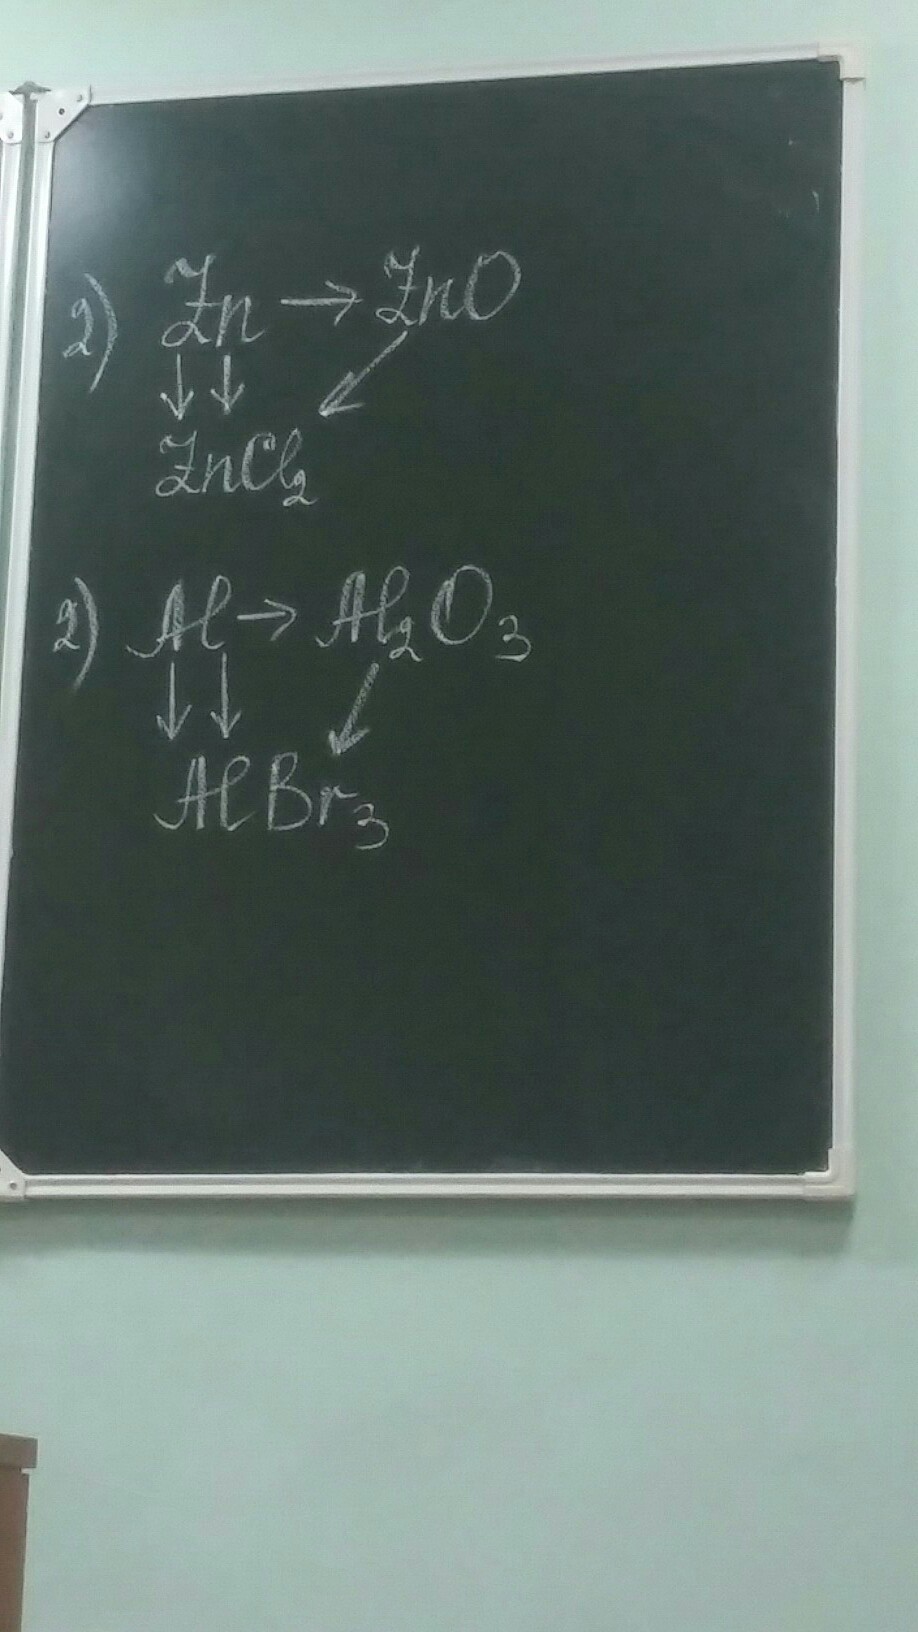 2) Zn → ZnO
↓ ↓ ↙
ZnCl₂
2) Al → Al₂O₃
↓ ↓ ↙
AlBr₃